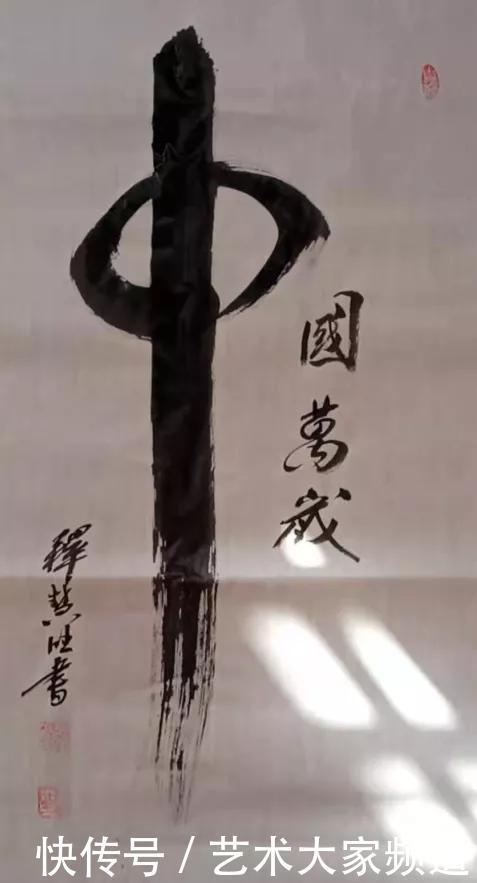 中
國萬歲
釋慧旺書
快传号 / 艺术大家频道